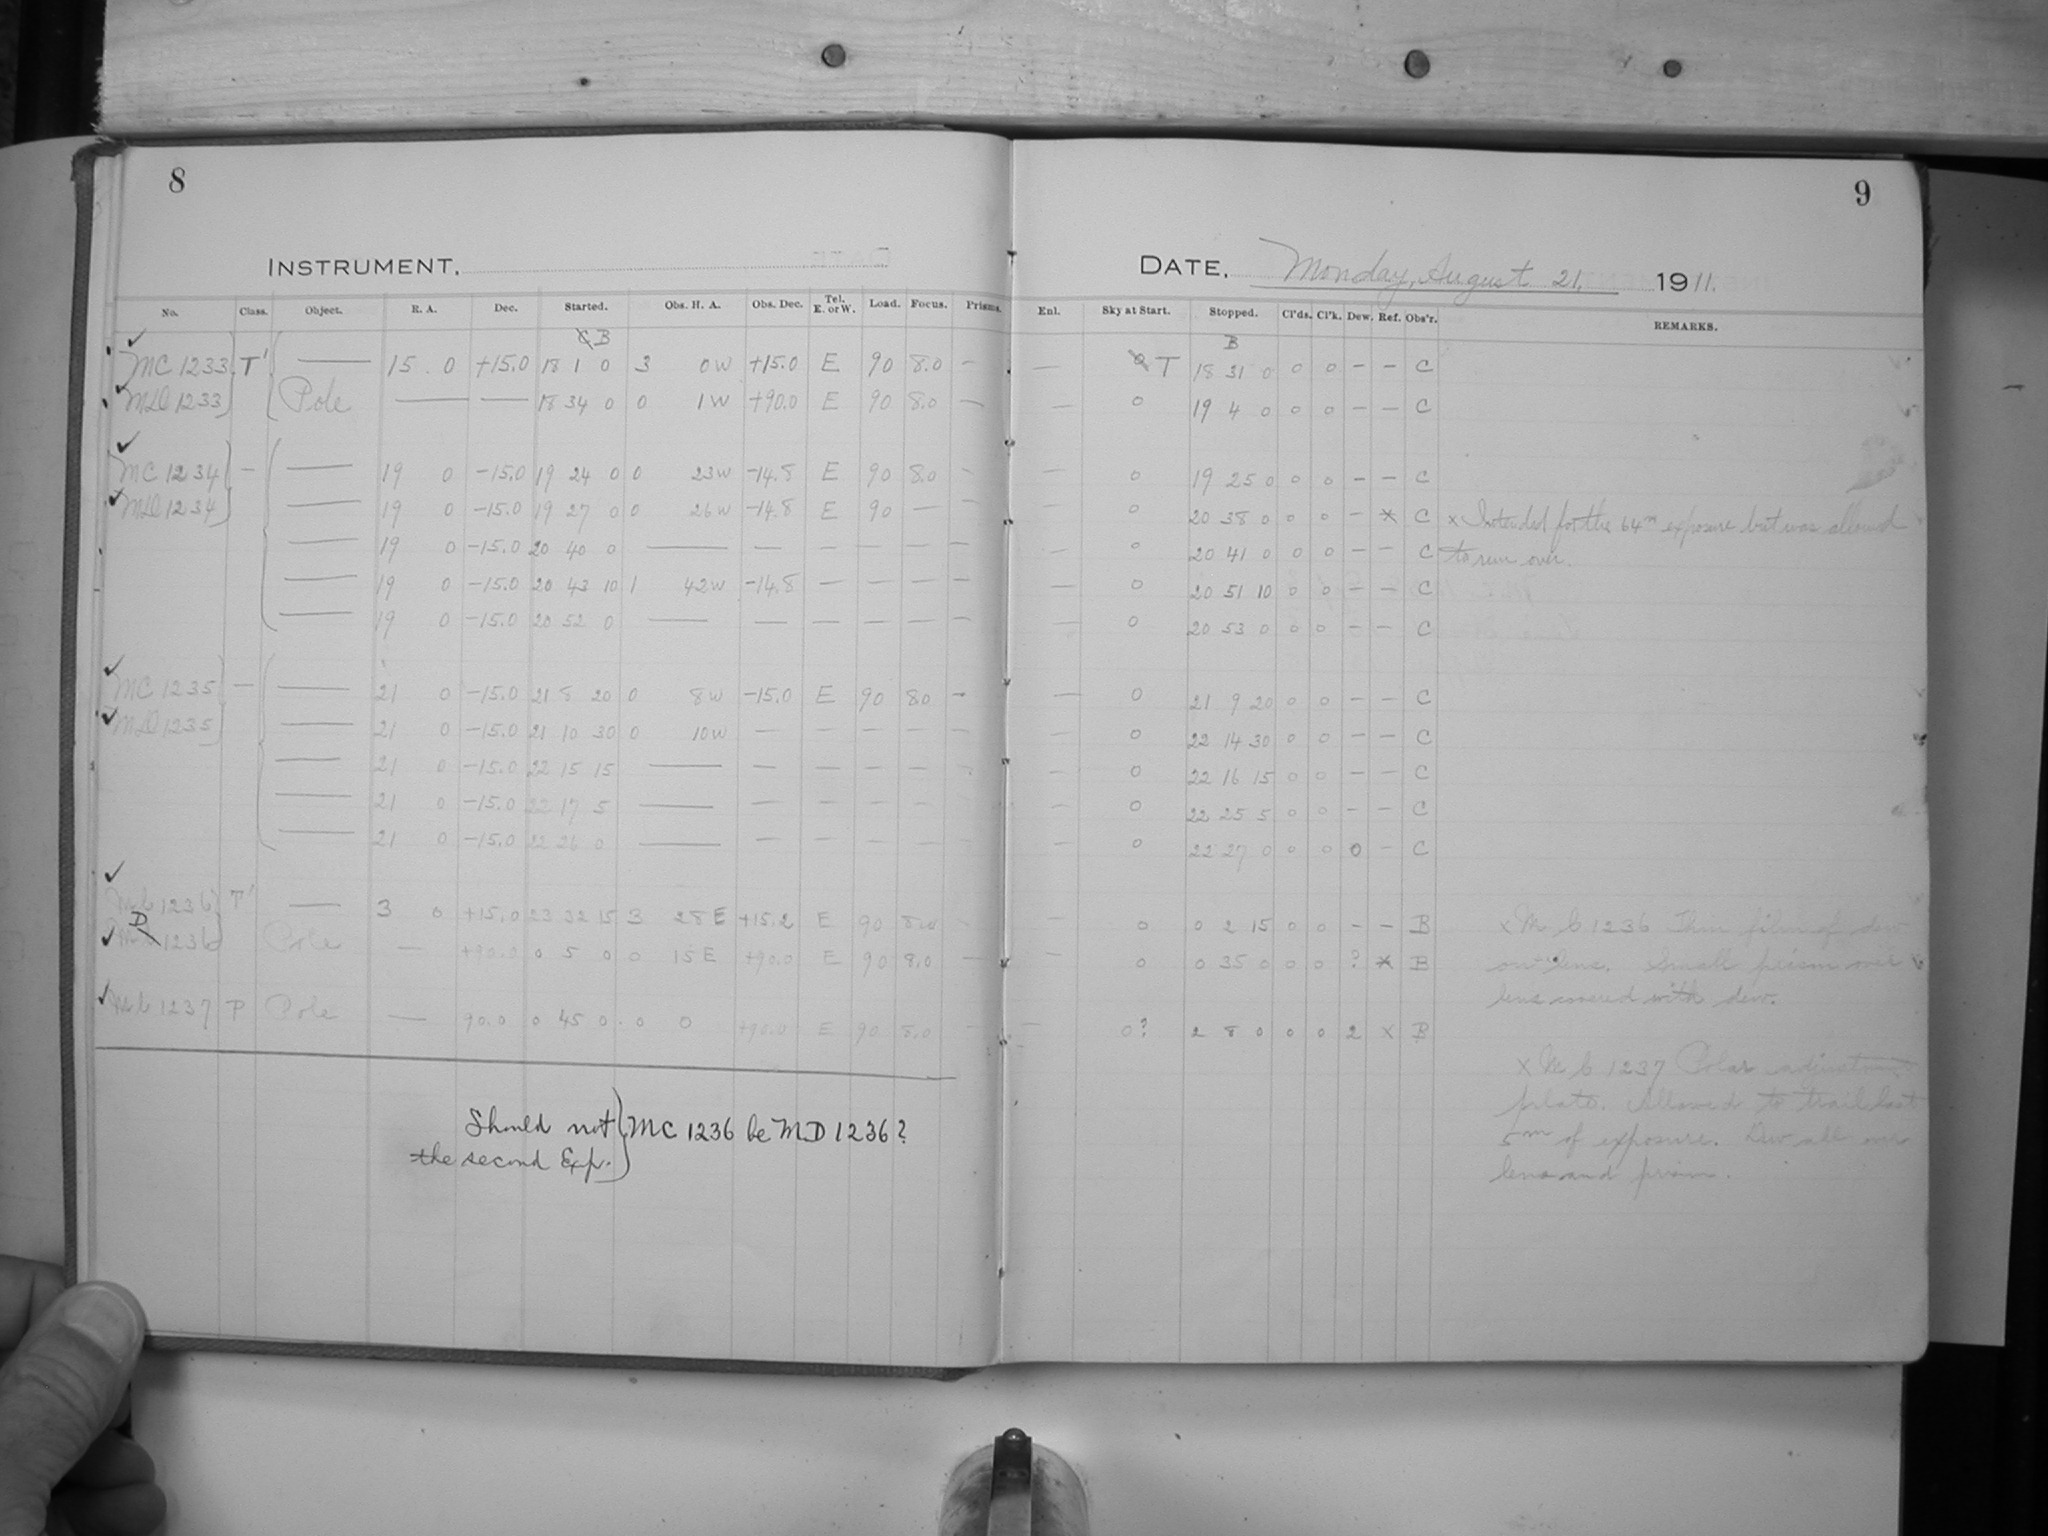 8
9
INSTRUMENT.
DATE. Monday, August 21, 1911.
No. Class. Object. R. A. Dec. Started. Obs. H. A. Obs. Dec. Tel. E. or W. Load. Focus. Prisms. Enl. Sky at Start. Stopped. Cl'ds. Cl'k. Dew. Ref. Obs'r. REMARKS.
B B
MC 1233 T' — 15 . 0 +15.0 18 1 0 3 0 W +15.0 E 90 8.0 — — T 18 31 0 0 0 — — C
MD 1233 Pole — — 18 34 0 0 1 W +90.0 E 90 8.0 — — 0 19 4 0 0 0 — — C
MC 1234 — — 19 0 -15.0 19 24 0 0 23 W -14.8 E 90 8.0 — — 0 19 25 0 0 0 — — C
MD 1234 — 19 0 -15.0 19 27 0 0 26 W -14.8 E 90 — — — 0 20 38 0 0 0 — x C x Intended for the 64m exposure but was allowed
— 19 0 -15.0 20 40 0 — — — — — — — 0 20 41 0 0 0 — — C to run over.
— 19 0 -15.0 20 43 10 1 42 W -14.8 — — — — — 0 20 51 10 0 0 — — C
— 19 0 -15.0 20 52 0 — — — — — — — 0 20 53 0 0 0 — — C
MC 1235 — — 21 0 -15.0 21 8 20 0 8 W -15.0 E 90 8.0 — — 0 21 9 20 0 0 — — C
MD 1235 — 21 0 -15.0 21 10 30 0 10 W — — — — — — 0 22 14 30 0 0 — — C
— 21 0 -15.0 22 15 15 — — — — — — — 0 22 16 15 0 0 — — C
— 21 0 -15.0 22 17 5 — — — — — — — 0 22 25 5 0 0 — — C
— 21 0 -15.0 22 26 0 — — — — — — — 0 22 27 0 0 0 0 — C
MC 1236 T' — 3 0 +15.0 23 32 15 3 28 E +15.2 E 90 8.0 — — 0 0 2 15 0 0 — — B x MC 1236 Thin film of dew
D
MC 1236 Pole — +90.0 0 5 0 0 15 E +90.0 E 90 8.0 — — 0 0 35 0 0 0 ? x B on lens. Small prism over
lens covered with dew.
MC 1237 P Pole — 90.0 0 45 0 0 0 +90.0 E 90 8.0 — — 0? 2 8 0 0 0 2 x B
x MC 1237 Polar
plate. Allowed to trail last
5m of exposure. Dew all over
lens and prism.
Should not } MC 1236 be MD 1236?
the second Exp.